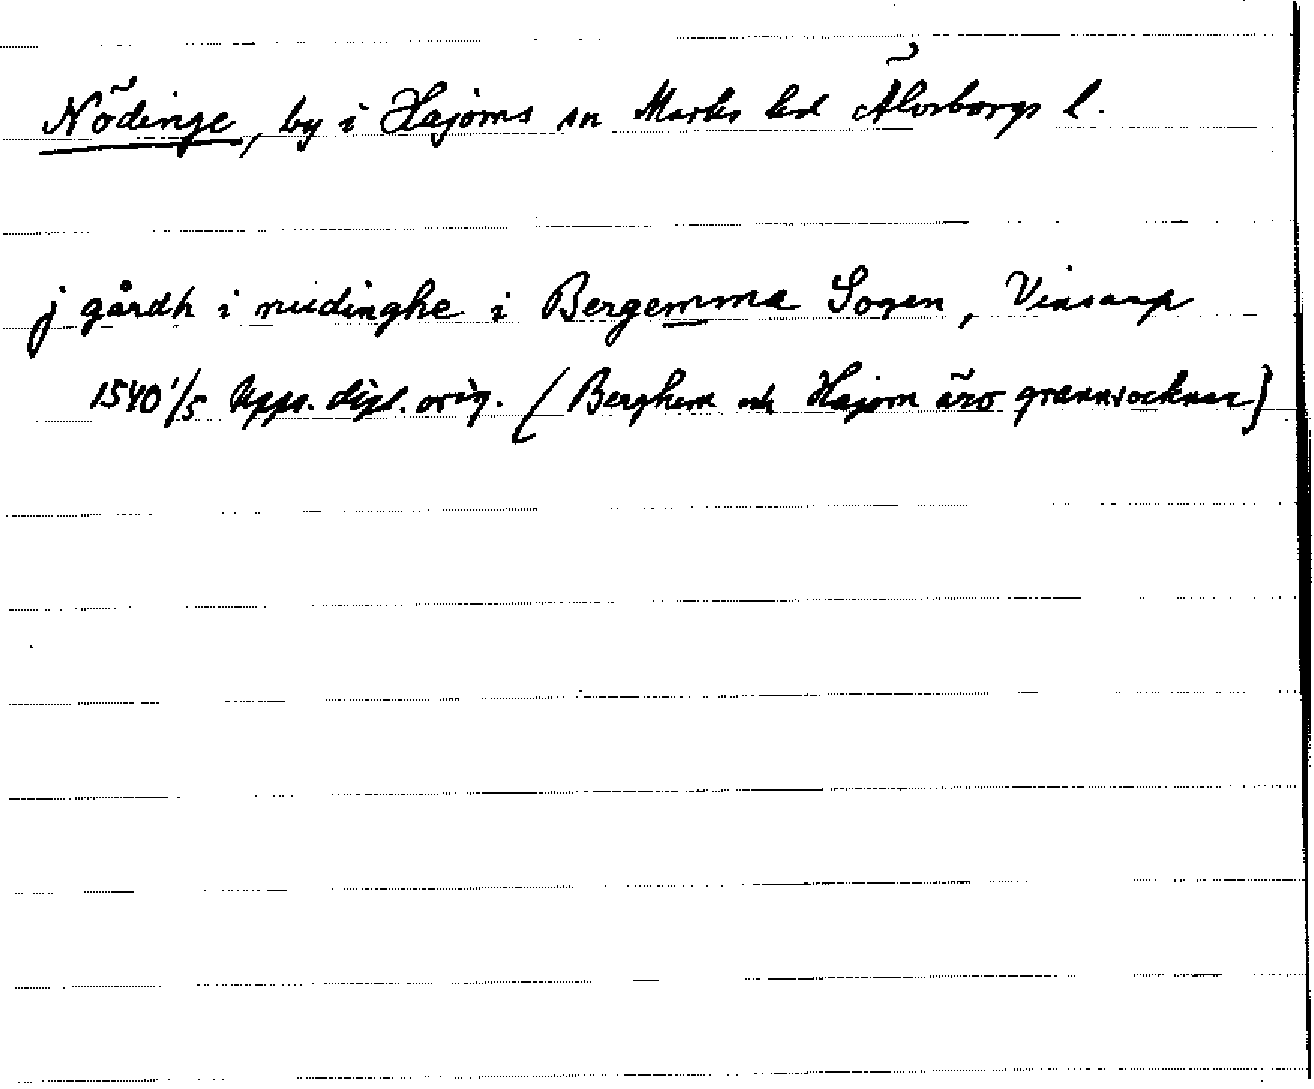 Nödinge, by i Hajoms sn Marks hd Älvsborgs l.
j gårdh i nudinghe i Bergemma Sogen, Vinsarp
1540 1/5 Upps. dipl. orig. (Berghem och Hajom äro grannsocknar)